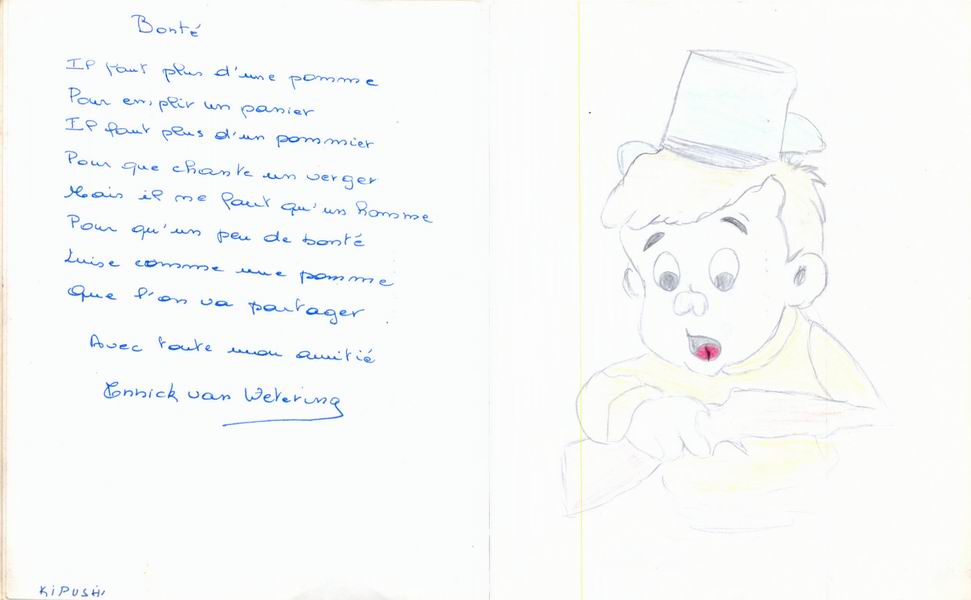 Bonté
Il faut plus d'une pomme
Pour emplir un panier
Il faut plus d'un pommier
Pour que chante un verger
Mais il ne faut qu'un homme
Pour qu'un peu de bonté
Luise comme une pomme
Que l'on va partager
Avec toute mon amitié
Ennick van Wetering
KiPUSHi